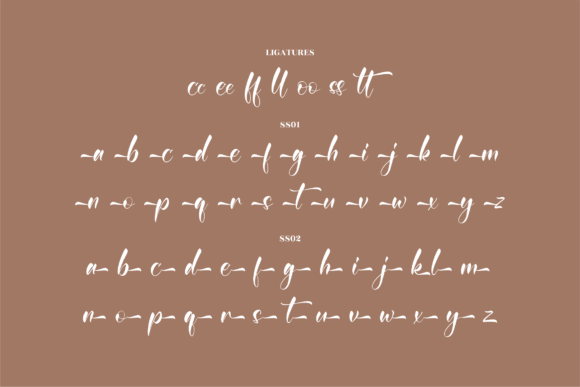 LIGATURES
cc ee ff ll oo ss tt
SS01
a b c d e f g h i j k l m
n o p q r s t u v w x y z
SS02
a b c d e f g h i j k l m
n o p q r s t u v w x y z